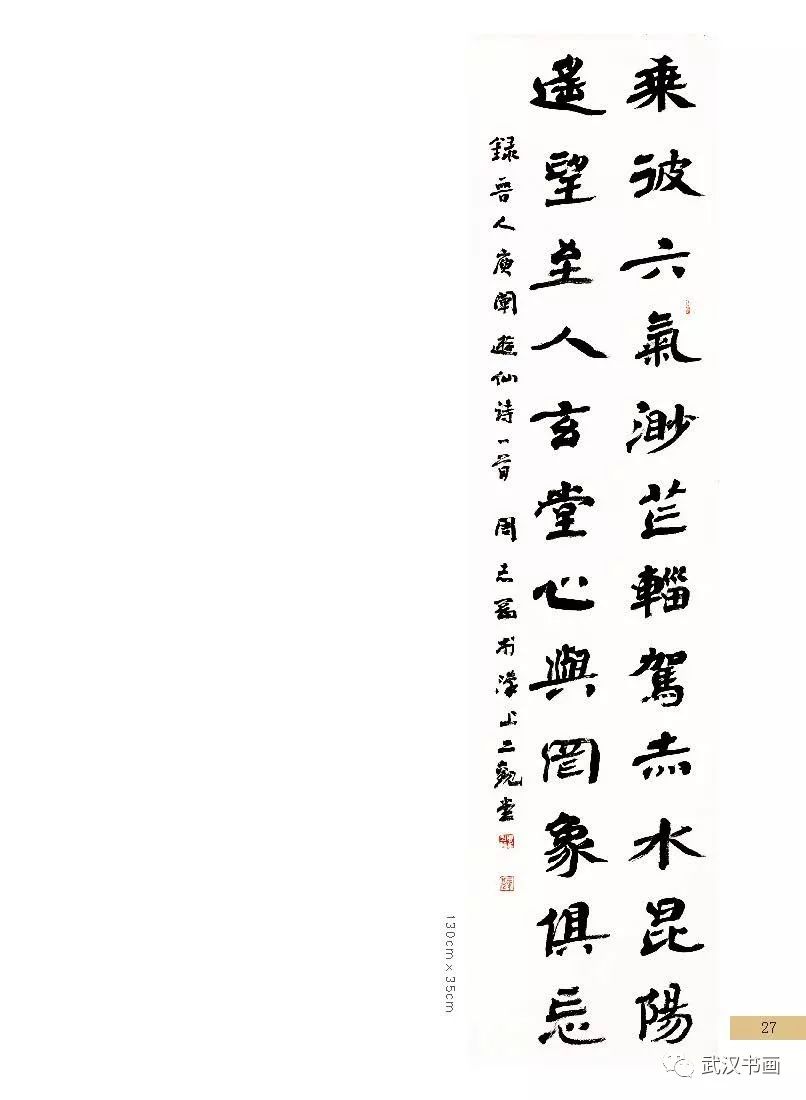 乘彼六氣渺芒輜駕赤水昆陽
遙望至人玄堂心與罔象俱忘
錄晉人庾闡遊仙詩一首 周志 於漢上二觀堂
130cm×35cm
27
武汉书画